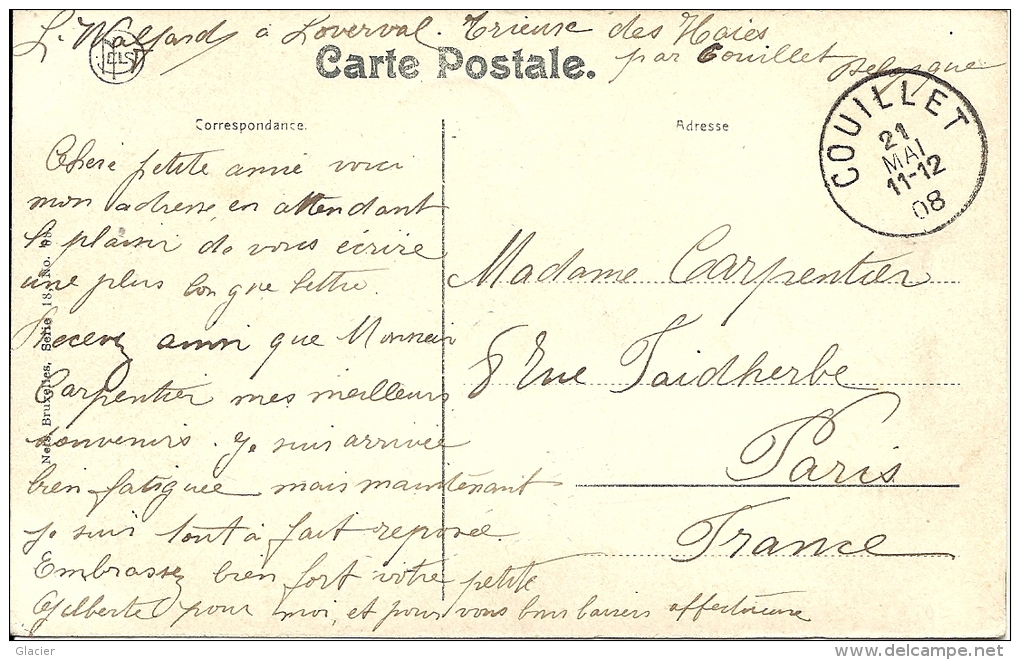 L. Wallard à Loverval. Trieuse des Haies
par Couillet Belgique
Carte Postale.
Correspondance.
Adresse
COUILLET
21
MAI
11-12
08
Chère petite amie voici
mon adresse, en attendant
le plaisir de vous écrire
une plus longue lettre.
Recevez ainsi que Monsieur
Carpentier mes meilleurs
souvenirs. Je suis arrivée
bien fatiguée mais maintenant
je suis tout à fait reposée.
Embrassez bien fort votre petite
Gilberte pour moi, et pour vous bons baisers affectueux
Madame Carpentier
8 Rue Faidherbe
Paris
France
Nels, Bruxelles, Série 18, No. 98.
Glacier
www.delcampe.net